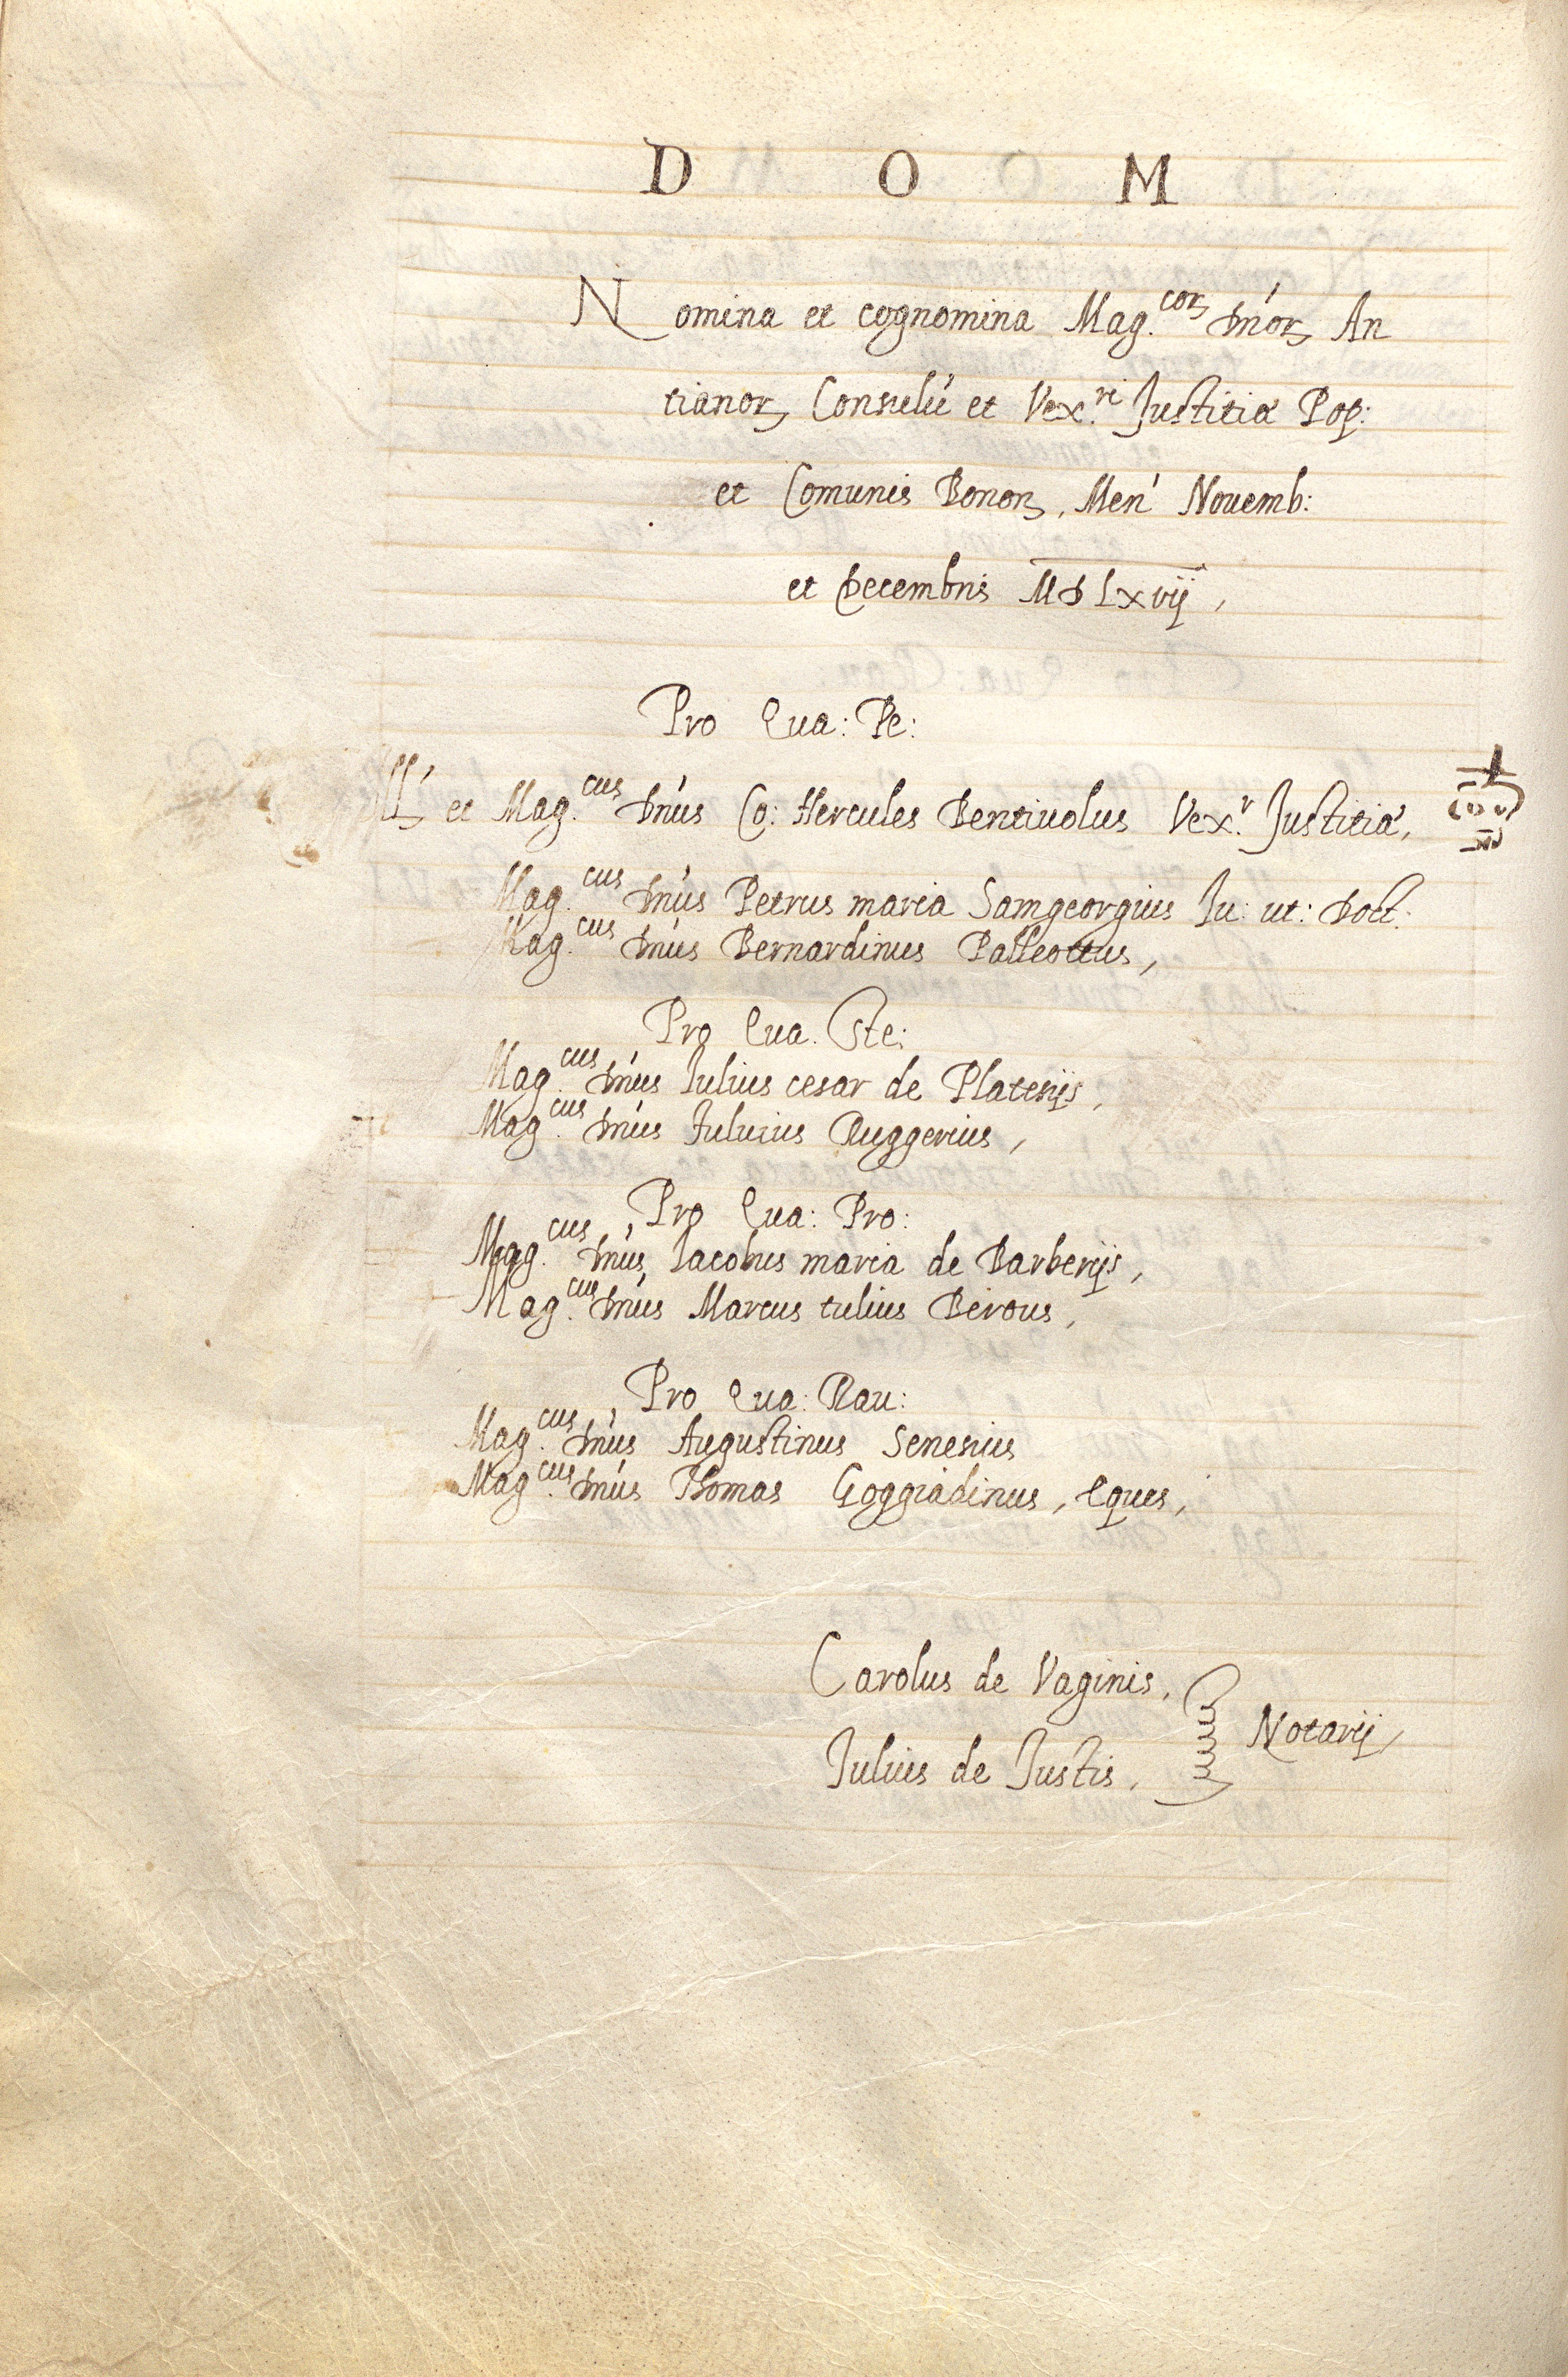 D O M
Nomina et cognomina Mag.coꝝ Dn'oꝝ An
tianoꝝ Consulu' et Vex.ri Justitiæ Pop:
et Comunis Bonoꝝ, Men' Nouemb:
et Decembris MDLxvij,
Pro Qua: Pe:
Ill' et Mag.cus Dn'us Co: Hercules Bentiuolus Vex.r Justitiæ,
Mag.cus Dn'us Petrus maria Samgeorgius Iu: ut: Doct:
Mag.cus Dn'us Bernardinus Palleottus,
Pro Qua. Ste:
Mag.cus Dn'us Iulius cesar de Platesijs,
Mag.cus Dn'us Ruggerius,
Pro Qua: Pro:
Mag.cus Dn'us Iacobus maria de Barberijs,
Mag.cus Dn'us Marcus tulius Berous,
Pro Qua: Rau:
Mag.cus Dn'us Augustinus Senesius
Mag.cus Dn'us Thomas Goggiadinus, Eques,
Carolus de Vaginis,
Notarij,
Julius de Justis,